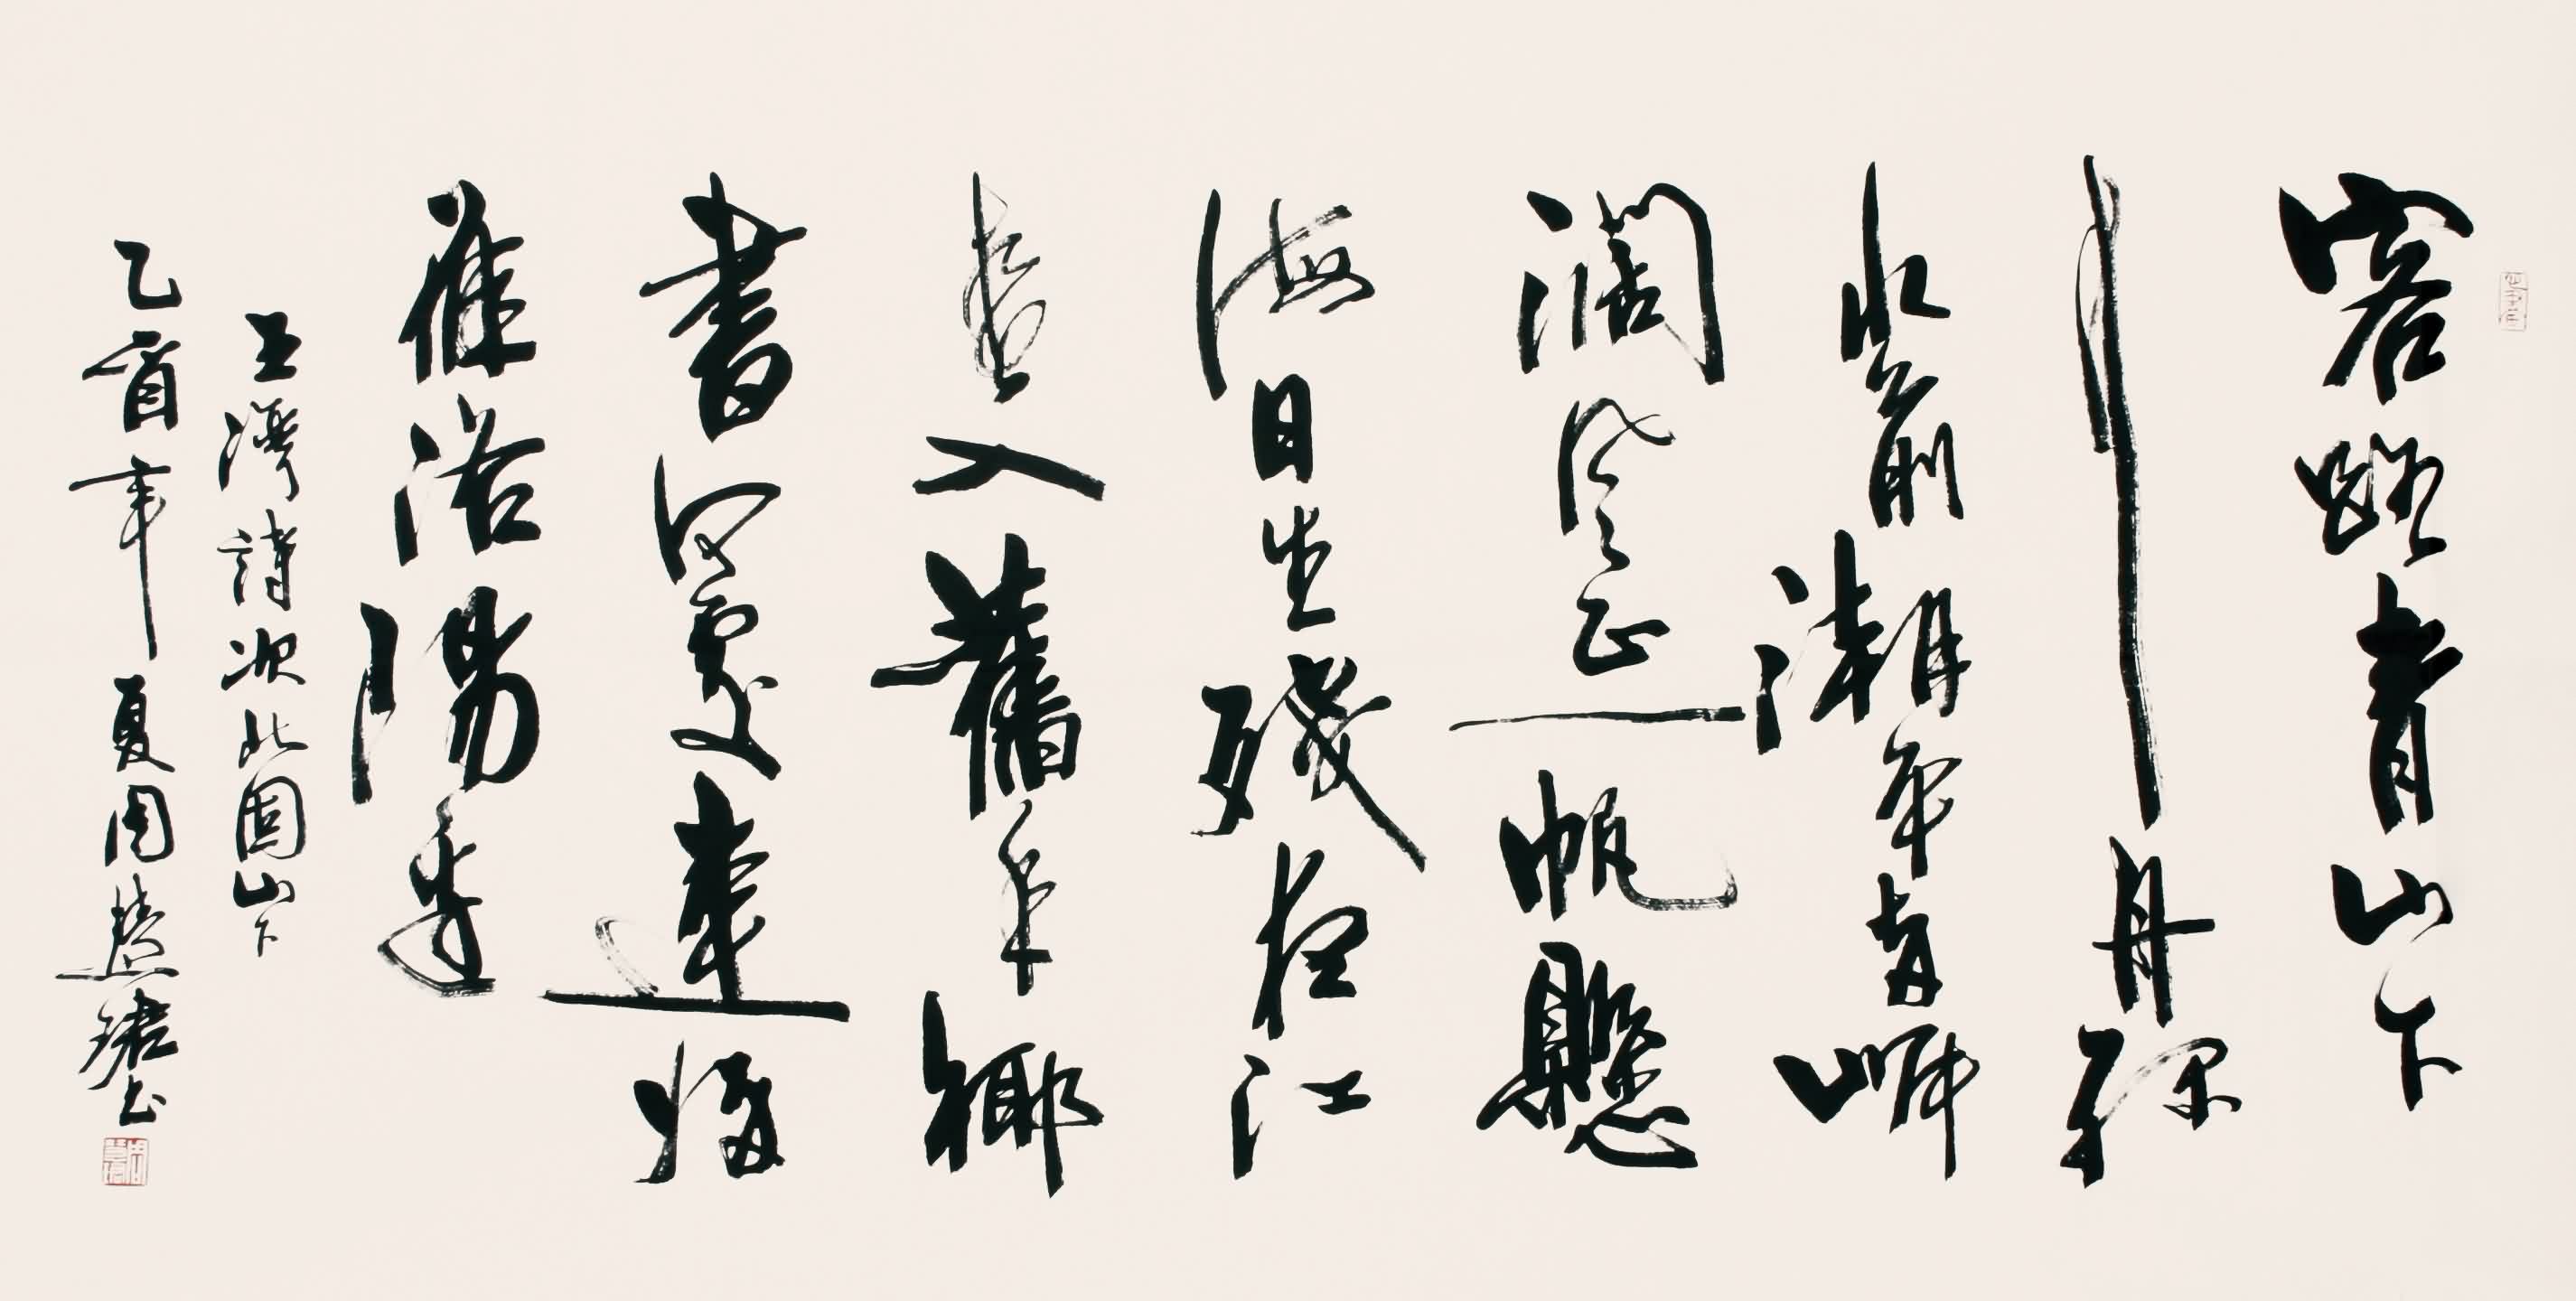 客路青山下
行舟綠
水前潮平兩岸
濶風正一帆懸
海日生殘夜江
春入舊年鄉
書何處達歸
雁洛陽邊
王灣詩次北固山下
乙酉年夏周慧珺书